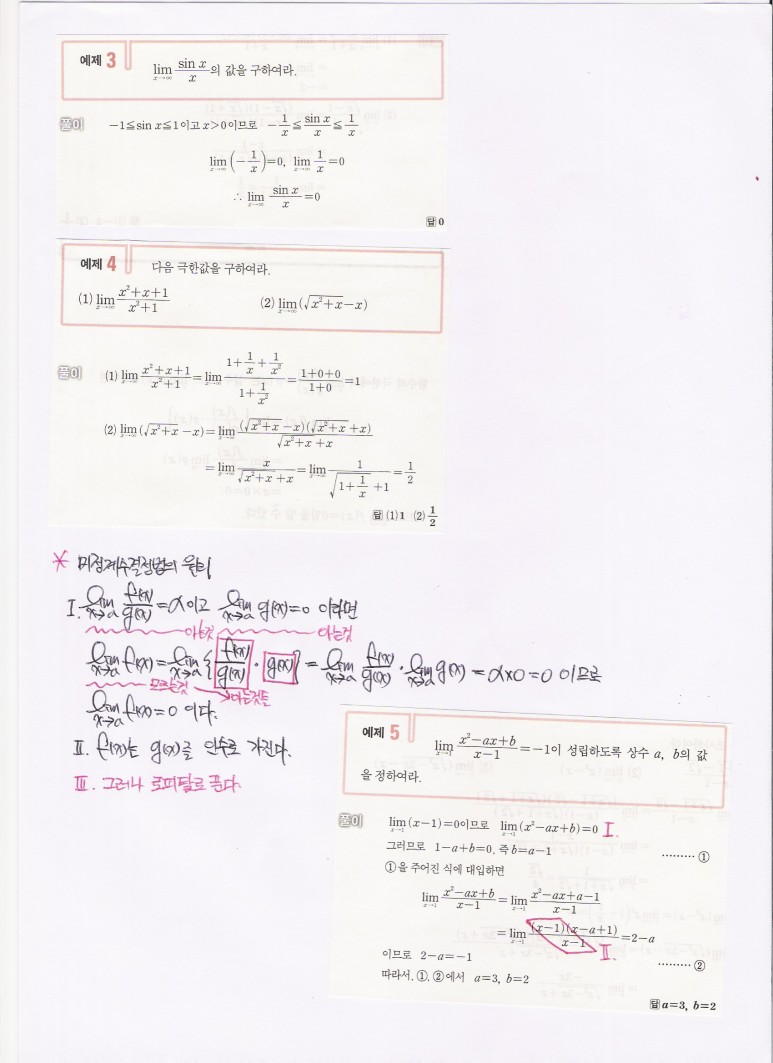 예제 3
lim x→∞ sin x / x 의 값을 구하여라.
풀이 -1≦sin x≦1이고 x>0이므로 -1/x ≦ sin x / x ≦ 1/x
lim x→∞ (-1/x)=0, lim x→∞ 1/x =0
∴ lim x→∞ sin x / x =0
답 0
예제 4 다음 극한값을 구하여라.
(1) lim x→∞ (x²+x+1)/(x²+1) (2) lim x→∞ (√(x²+x)-x)
풀이 (1) lim x→∞ (x²+x+1)/(x²+1) = lim x→∞ (1+1/x+1/x²)/(1+1/x²) = (1+0+0)/(1+0) =1
(2) lim x→∞ (√(x²+x)-x) = lim x→∞ (√(x²+x)-x)(√(x²+x)+x)/(√(x²+x)+x)
= lim x→∞ x/(√(x²+x)+x) = lim x→∞ 1/(√(1+1/x)+1) = 1/2
답 (1) 1 (2) 1/2
* 미정계수결정법의 원리
Ⅰ. lim x→a f(x)/g(x) = α 이고 lim x→a g(x)=0 이라면
아는것 아는것
lim x→a f(x) = lim x→a { f(x)/g(x) · g(x) } = lim x→a f(x)/g(x) · lim x→a g(x) = α×0 = 0 이므로
모르는것 → 아는것들
lim x→a f(x)=0 이다.
Ⅱ. f(x)는 g(x)를 인수로 가진다.
Ⅲ. 그러나 로피탈로 푼다.
예제 5
lim x→1 (x²-ax+b)/(x-1) =-1이 성립하도록 상수 a, b의 값
을 정하여라.
풀이 lim x→1 (x-1)=0이므로 lim x→1 (x²-ax+b)=0 Ⅰ.
그러므로 1-a+b=0, 즉 b=a-1 ……… ①
①을 주어진 식에 대입하면
lim x→1 (x²-ax+b)/(x-1) = lim x→1 (x²-ax+a-1)/(x-1)
= lim x→1 (x-1)(x-a+1)/(x-1) =2-a
Ⅱ.
이므로 2-a=-1 ……… ②
따라서, ①, ②에서 a=3, b=2
답 a=3, b=2